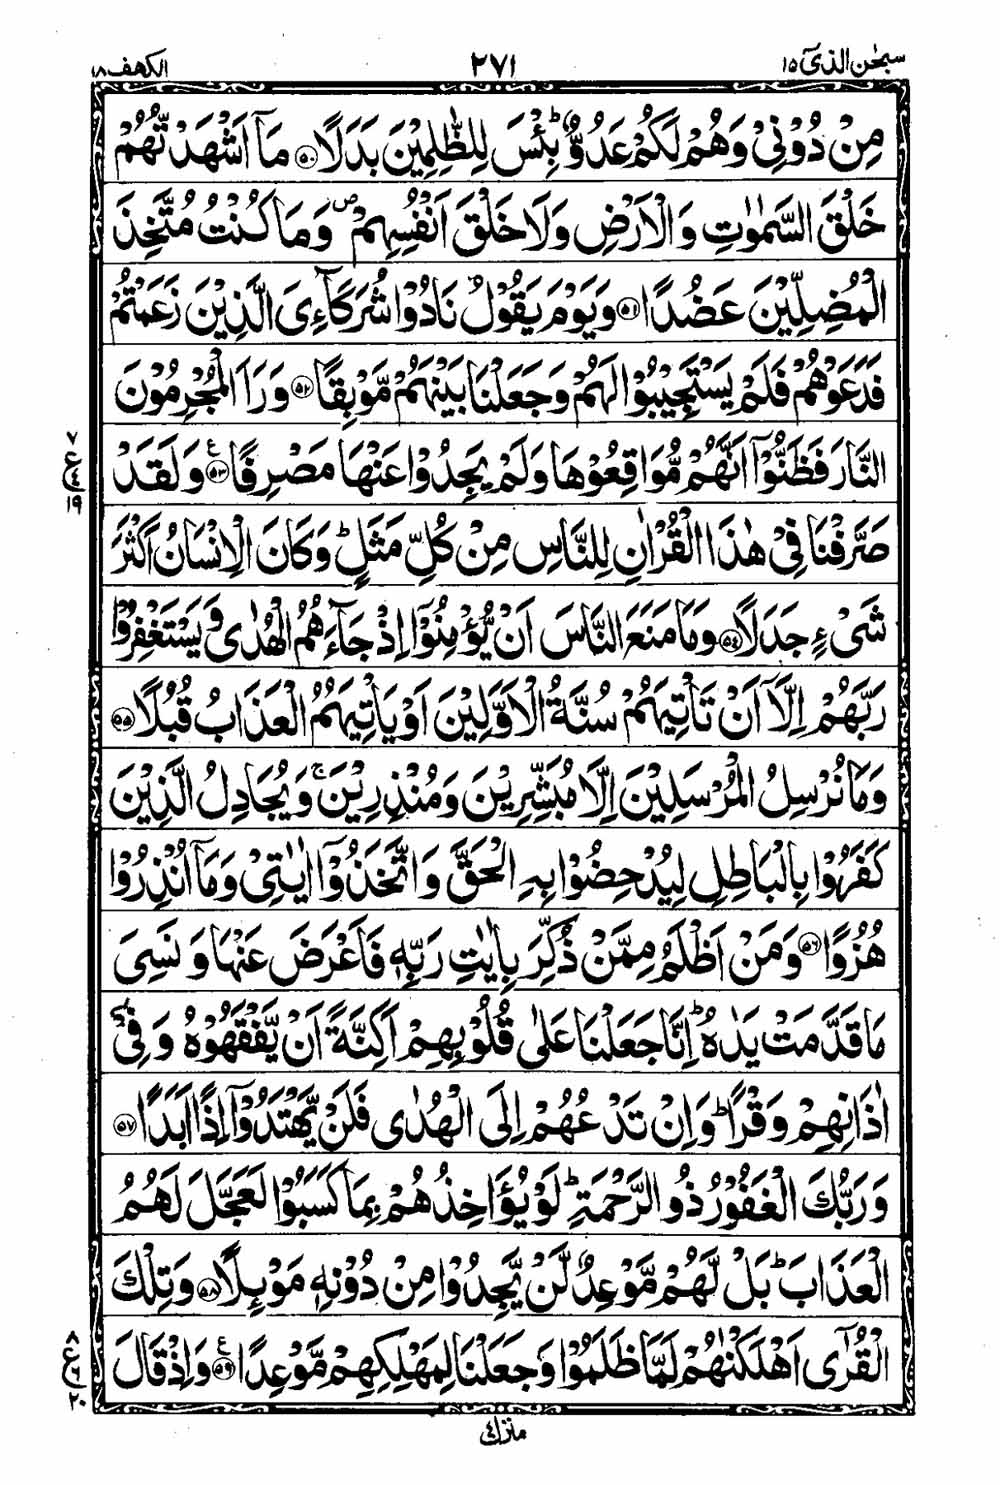 سبحٰن الذیٓ ۱۵
۲۷۱
الکهف ۱۸
مِنْ دُوْنِیْ وَهُمْ لَكُمْ عَدُوٌّ ؕ بِئْسَ لِلظّٰلِمِیْنَ بَدَلًا ۵۰ مَاۤ اَشْهَدْتُّهُمْ
خَلْقَ السَّمٰوٰتِ وَالْاَرْضِ وَلَا خَلْقَ اَنْفُسِهِمْ ۪ وَمَا كُنْتُ مُتَّخِذَ
الْمُضِلِّیْنَ عَضُدًا ۵۱ وَیَوْمَ یَقُوْلُ نَادُوْا شُرَكَآءِیَ الَّذِیْنَ زَعَمْتُمْ
فَدَعَوْهُمْ فَلَمْ یَسْتَجِیْبُوْا لَهُمْ وَجَعَلْنَا بَیْنَهُمْ مَّوْبِقًا ۵۲ وَرَاَ الْمُجْرِمُوْنَ
النَّارَ فَظَنُّوْۤا اَنَّهُمْ مُّوَاقِعُوْهَا وَلَمْ یَجِدُوْا عَنْهَا مَصْرِفًا ۵۳ ع وَلَقَدْ
۷ ع ۴ ۱۹
صَرَّفْنَا فِیْ هٰذَا الْقُرْاٰنِ لِلنَّاسِ مِنْ كُلِّ مَثَلٍ ؕ وَكَانَ الْاِنْسَانُ اَكْثَرَ
شَیْءٍ جَدَلًا ۵۴ وَمَا مَنَعَ النَّاسَ اَنْ یُّؤْمِنُوْۤا اِذْ جَآءَهُمُ الْهُدٰی وَیَسْتَغْفِرُوْا
رَبَّهُمْ اِلَّاۤ اَنْ تَاْتِیَهُمْ سُنَّةُ الْاَوَّلِیْنَ اَوْ یَاْتِیَهُمُ الْعَذَابُ قُبُلًا ۵۵
وَمَا نُرْسِلُ الْمُرْسَلِیْنَ اِلَّا مُبَشِّرِیْنَ وَمُنْذِرِیْنَ ۚ وَیُجَادِلُ الَّذِیْنَ
كَفَرُوْا بِالْبَاطِلِ لِیُدْحِضُوْا بِهِ الْحَقَّ وَاتَّخَذُوْۤا اٰیٰتِیْ وَمَاۤ اُنْذِرُوْا
هُزُوًا ۵۶ وَمَنْ اَظْلَمُ مِمَّنْ ذُكِّرَ بِاٰیٰتِ رَبِّهٖ فَاَعْرَضَ عَنْهَا وَنَسِیَ
مَا قَدَّمَتْ یَدٰهُ ؕ اِنَّا جَعَلْنَا عَلٰی قُلُوْبِهِمْ اَكِنَّةً اَنْ یَّفْقَهُوْهُ وَفِیْۤ
اٰذَانِهِمْ وَقْرًا ؕ وَاِنْ تَدْعُهُمْ اِلَی الْهُدٰی فَلَنْ یَّهْتَدُوْۤا اِذًا اَبَدًا ۵۷
وَرَبُّكَ الْغَفُوْرُ ذُو الرَّحْمَةِ ؕ لَوْ یُؤَاخِذُهُمْ بِمَا كَسَبُوْا لَعَجَّلَ لَهُمُ
الْعَذَابَ ؕ بَلْ لَّهُمْ مَّوْعِدٌ لَّنْ یَّجِدُوْا مِنْ دُوْنِهٖ مَوْئِلًا ۵۸ وَتِلْكَ
الْقُرٰۤی اَهْلَكْنٰهُمْ لَمَّا ظَلَمُوْا وَجَعَلْنَا لِمَهْلِكِهِمْ مَّوْعِدًا ۵۹ ع وَاِذْ قَالَ
۸ ع ۶ ۲۰
منزل ۴